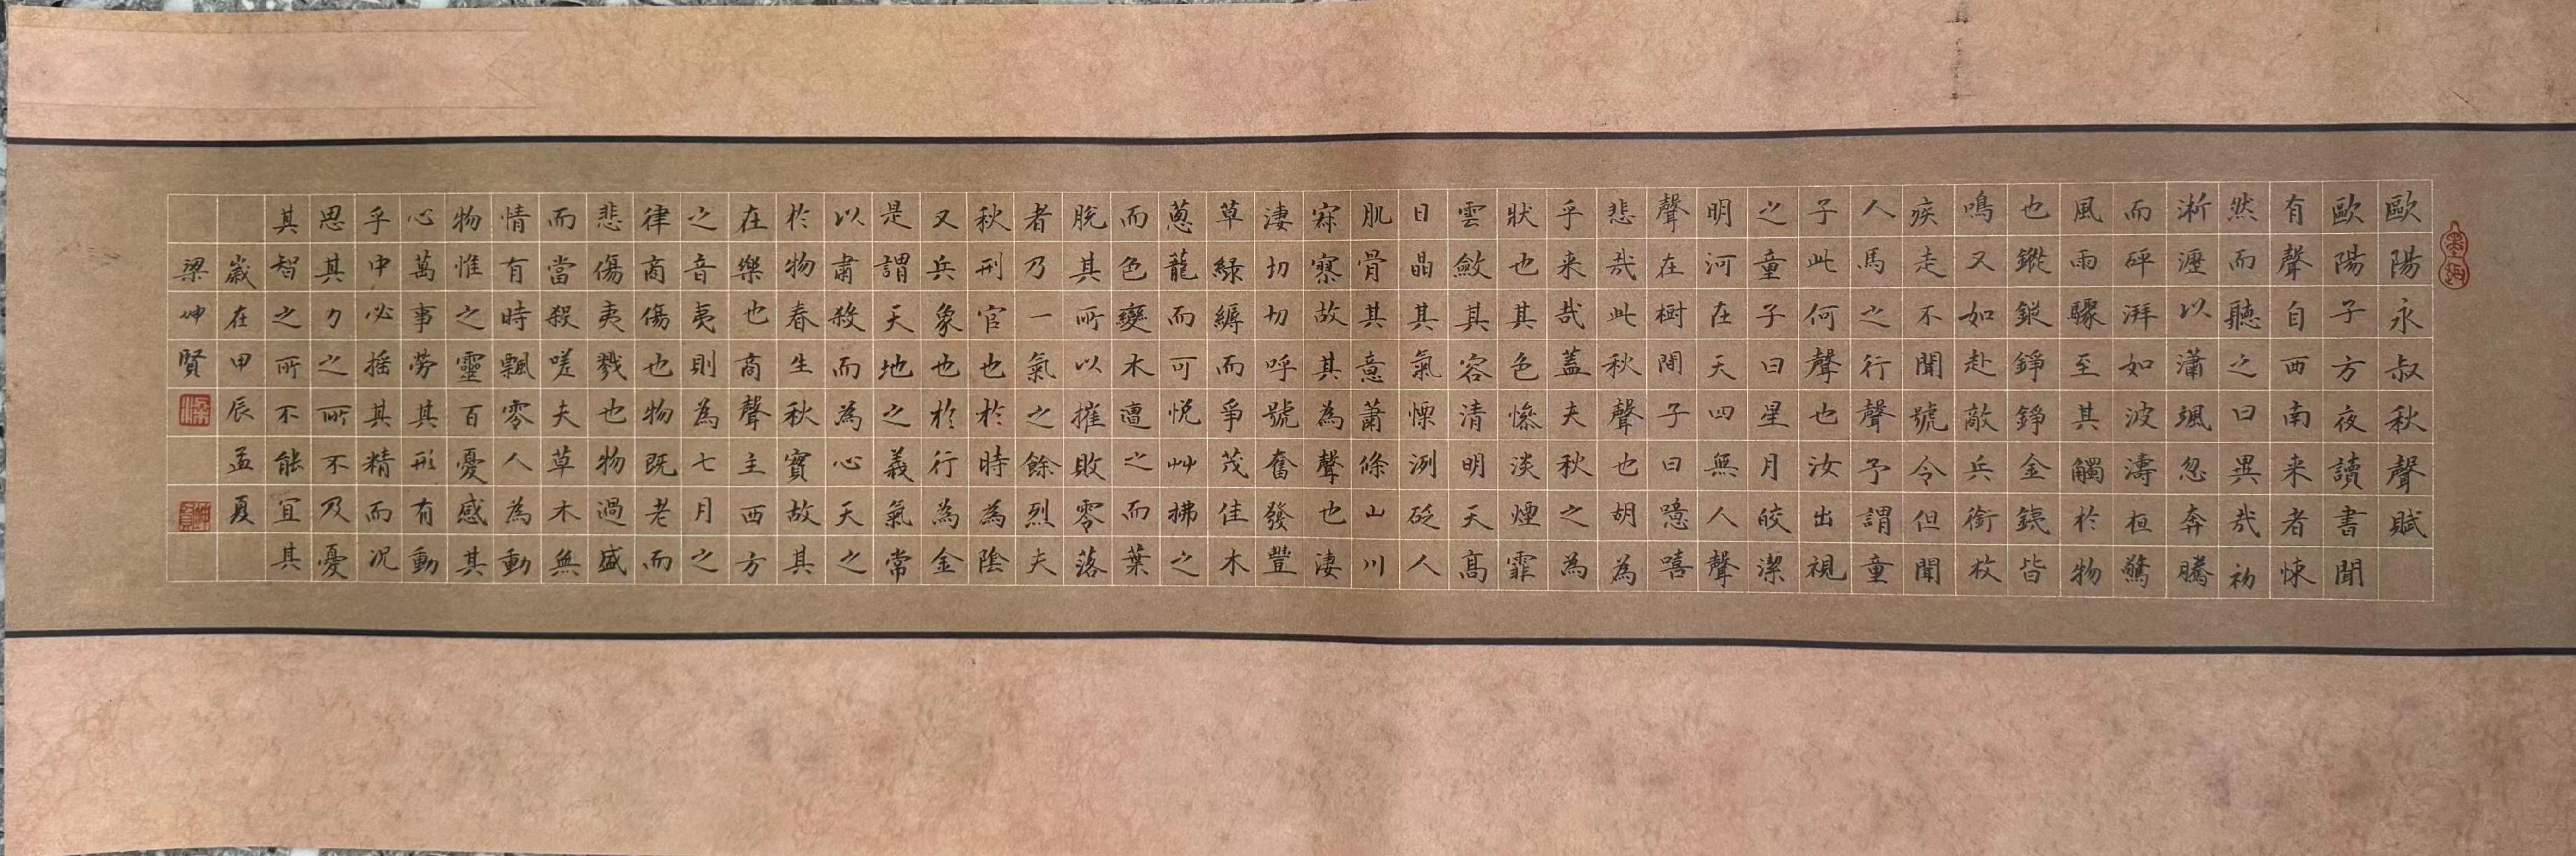 歐陽永叔秋聲賦
歐陽子方夜讀書聞
有聲自西南来者悚
然而聽之曰異哉初
淅瀝以瀟颯忽奔騰
而砰湃如波濤桓驚
風雨驟至其觸於物
也鏦鏦錚錚金鐵皆
鳴又如赴敵兵銜枚
疾走不聞號令但聞
人馬之行聲予謂童
子此何聲也汝出視
之童子曰星月皎潔
明河在天四無人聲
聲在樹間子曰噫嘻
悲哉此秋聲也胡為
乎来哉蓋夫秋之為
狀也其色慘淡煙霏
雲斂其容清明天高
日晶其氣慄冽砭人
肌骨其意蕭條山川
寂寥故其為聲也淒
淒切切呼號奮發豐
草綠縟而爭茂佳木
蔥蘢而可悅艸拂之
而色變木遭之而葉
脫其所以摧敗零落
者乃一氣之餘烈夫
秋刑官也於時為陰
又兵象也於行為金
是謂天地之義氣常
以肅殺而為心天之
於物春生秋實故其
在樂也商聲主西方
之音夷則為七月之
律商傷也物既老而
悲傷夷戮也物過盛
而當殺嗟夫草木無
情有時飄零人為動
物惟之靈百憂感其
心萬事勞其形有動
乎中必搖其精而況
思其力之所不及憂
其智之所不能宜其
歲在甲辰孟夏
梁坤賢